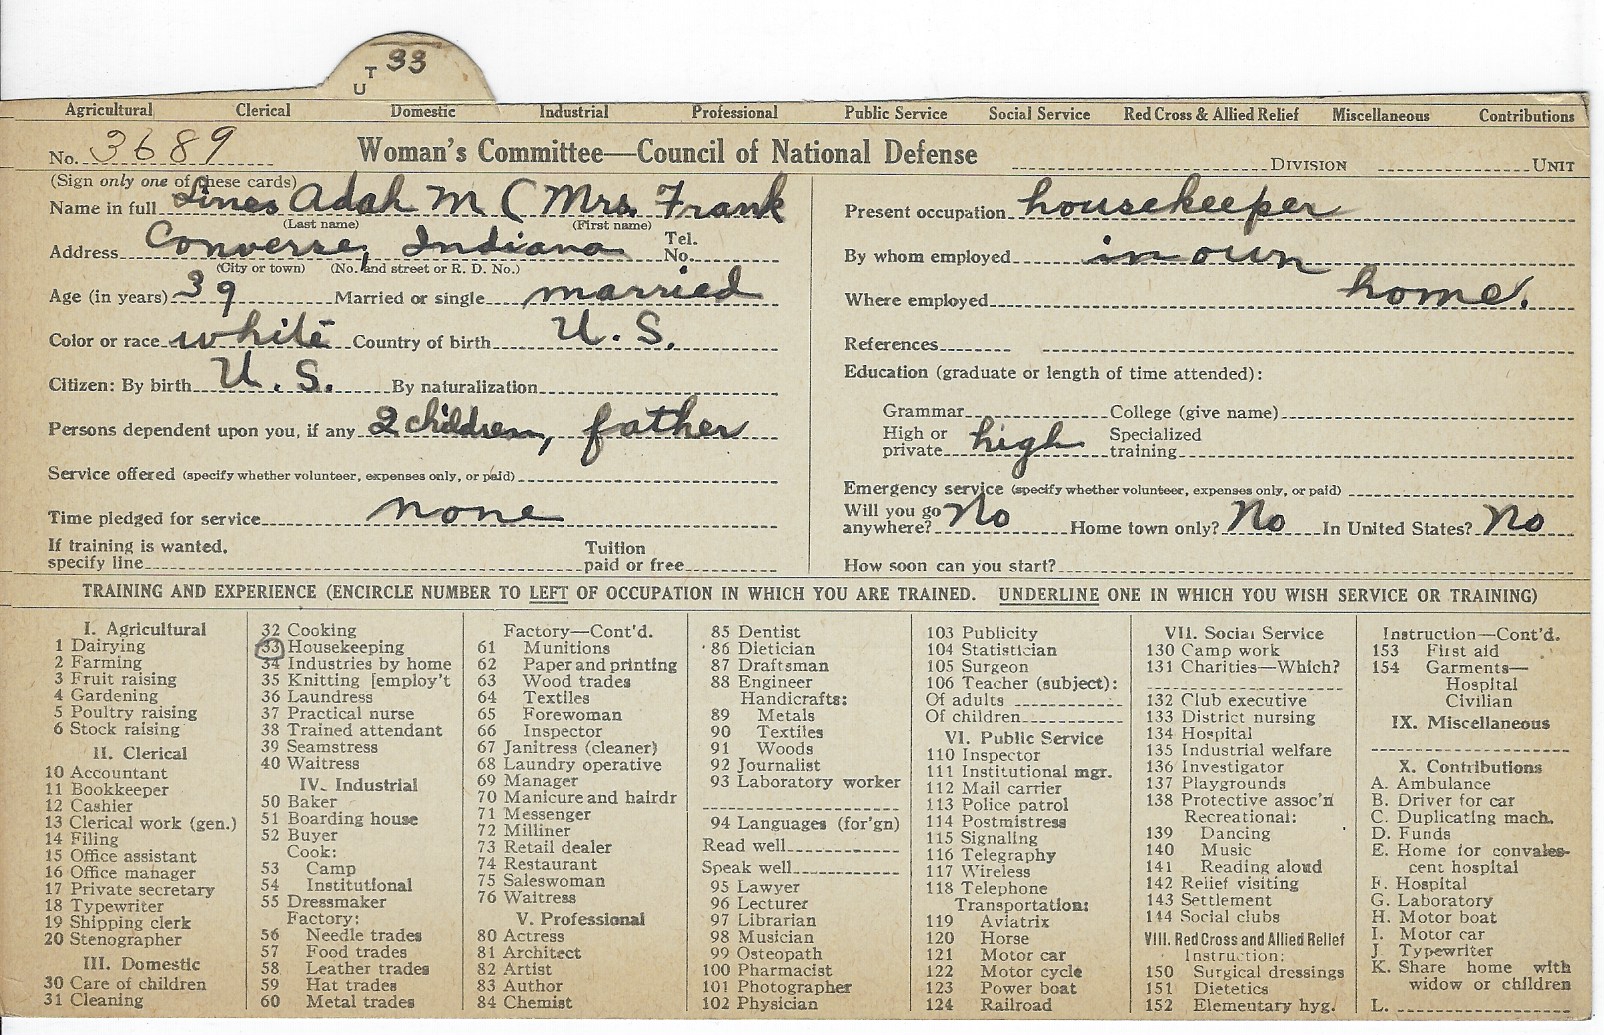 T 33
U
Agricultural Clerical Domestic Industrial Professional Public Service Social Service Red Cross & Allied Relief Miscellaneous Contributions
No. 3689 Woman's Committee—Council of National Defense DIVISION UNIT
(Sign only one of these cards)
Name in full Lines Adah M (Mrs. Frank
(Last name) (First name)
Address Converse, Indiana Tel. No.
(City or town) (No. and street or R. D. No.)
Age (in years) 39 Married or single married
Color or race white Country of birth U. S.
Citizen: By birth U. S. By naturalization
Persons dependent upon you, if any 2 children, father
Service offered (specify whether volunteer, expenses only, or paid)
Time pledged for service none
If training is wanted, specify line Tuition paid or free
Present occupation housekeeper
By whom employed in own
Where employed home.
References
Education (graduate or length of time attended):
Grammar College (give name)
High or private high Specialized training
Emergency service (specify whether volunteer, expenses only, or paid)
Will you go anywhere? No Home town only? No In United States? No
How soon can you start?
TRAINING AND EXPERIENCE (ENCIRCLE NUMBER TO LEFT OF OCCUPATION IN WHICH YOU ARE TRAINED. UNDERLINE ONE IN WHICH YOU WISH SERVICE OR TRAINING)
I. Agricultural
1 Dairying
2 Farming
3 Fruit raising
4 Gardening
5 Poultry raising
6 Stock raising
II. Clerical
10 Accountant
11 Bookkeeper
12 Cashier
13 Clerical work (gen.)
14 Filing
15 Office assistant
16 Office manager
17 Private secretary
18 Typewriter
19 Shipping clerk
20 Stenographer
III. Domestic
30 Care of children
31 Cleaning
32 Cooking
33 Housekeeping
34 Industries by home
35 Knitting [employ't
36 Laundress
37 Practical nurse
38 Trained attendant
39 Seamstress
40 Waitress
IV. Industrial
50 Baker
51 Boarding house
52 Buyer
Cook:
53 Camp
54 Institutional
55 Dressmaker
Factory:
56 Needle trades
57 Food trades
58 Leather trades
59 Hat trades
60 Metal trades
Factory—Cont'd.
61 Munitions
62 Paper and printing
63 Wood trades
64 Textiles
65 Forewoman
66 Inspector
67 Janitress (cleaner)
68 Laundry operative
69 Manager
70 Manicure and hairdr
71 Messenger
72 Milliner
73 Retail dealer
74 Restaurant
75 Saleswoman
76 Waitress
V. Professional
80 Actress
81 Architect
82 Artist
83 Author
84 Chemist
85 Dentist
86 Dietician
87 Draftsman
88 Engineer
Handicrafts:
89 Metals
90 Textiles
91 Woods
92 Journalist
93 Laboratory worker
94 Languages (for'gn)
Read well
Speak well
95 Lawyer
96 Lecturer
97 Librarian
98 Musician
99 Osteopath
100 Pharmacist
101 Photographer
102 Physician
103 Publicity
104 Statistician
105 Surgeon
106 Teacher (subject):
Of adults
Of children
VI. Public Service
110 Inspector
111 Institutional mgr.
112 Mail carrier
113 Police patrol
114 Postmistress
115 Signaling
116 Telegraphy
117 Wireless
118 Telephone
Transportation:
119 Aviatrix
120 Horse
121 Motor car
122 Motor cycle
123 Power boat
124 Railroad
VII. Social Service
130 Camp work
131 Charities—Which?
132 Club executive
133 District nursing
134 Hospital
135 Industrial welfare
136 Investigator
137 Playgrounds
138 Protective assoc'n
Recreational:
139 Dancing
140 Music
141 Reading aloud
142 Relief visiting
143 Settlement
144 Social clubs
VIII. Red Cross and Allied Relief
Instruction:
150 Surgical dressings
151 Dietetics
152 Elementary hyg.
Instruction—Cont'd.
153 First aid
154 Garments—
Hospital
Civilian
IX. Miscellaneous
X. Contributions
A. Ambulance
B. Driver for car
C. Duplicating mach.
D. Funds
E. Home for convales-
cent hospital
F. Hospital
G. Laboratory
H. Motor boat
I. Motor car
J Typewriter
K. Share home with
widow or children
L.